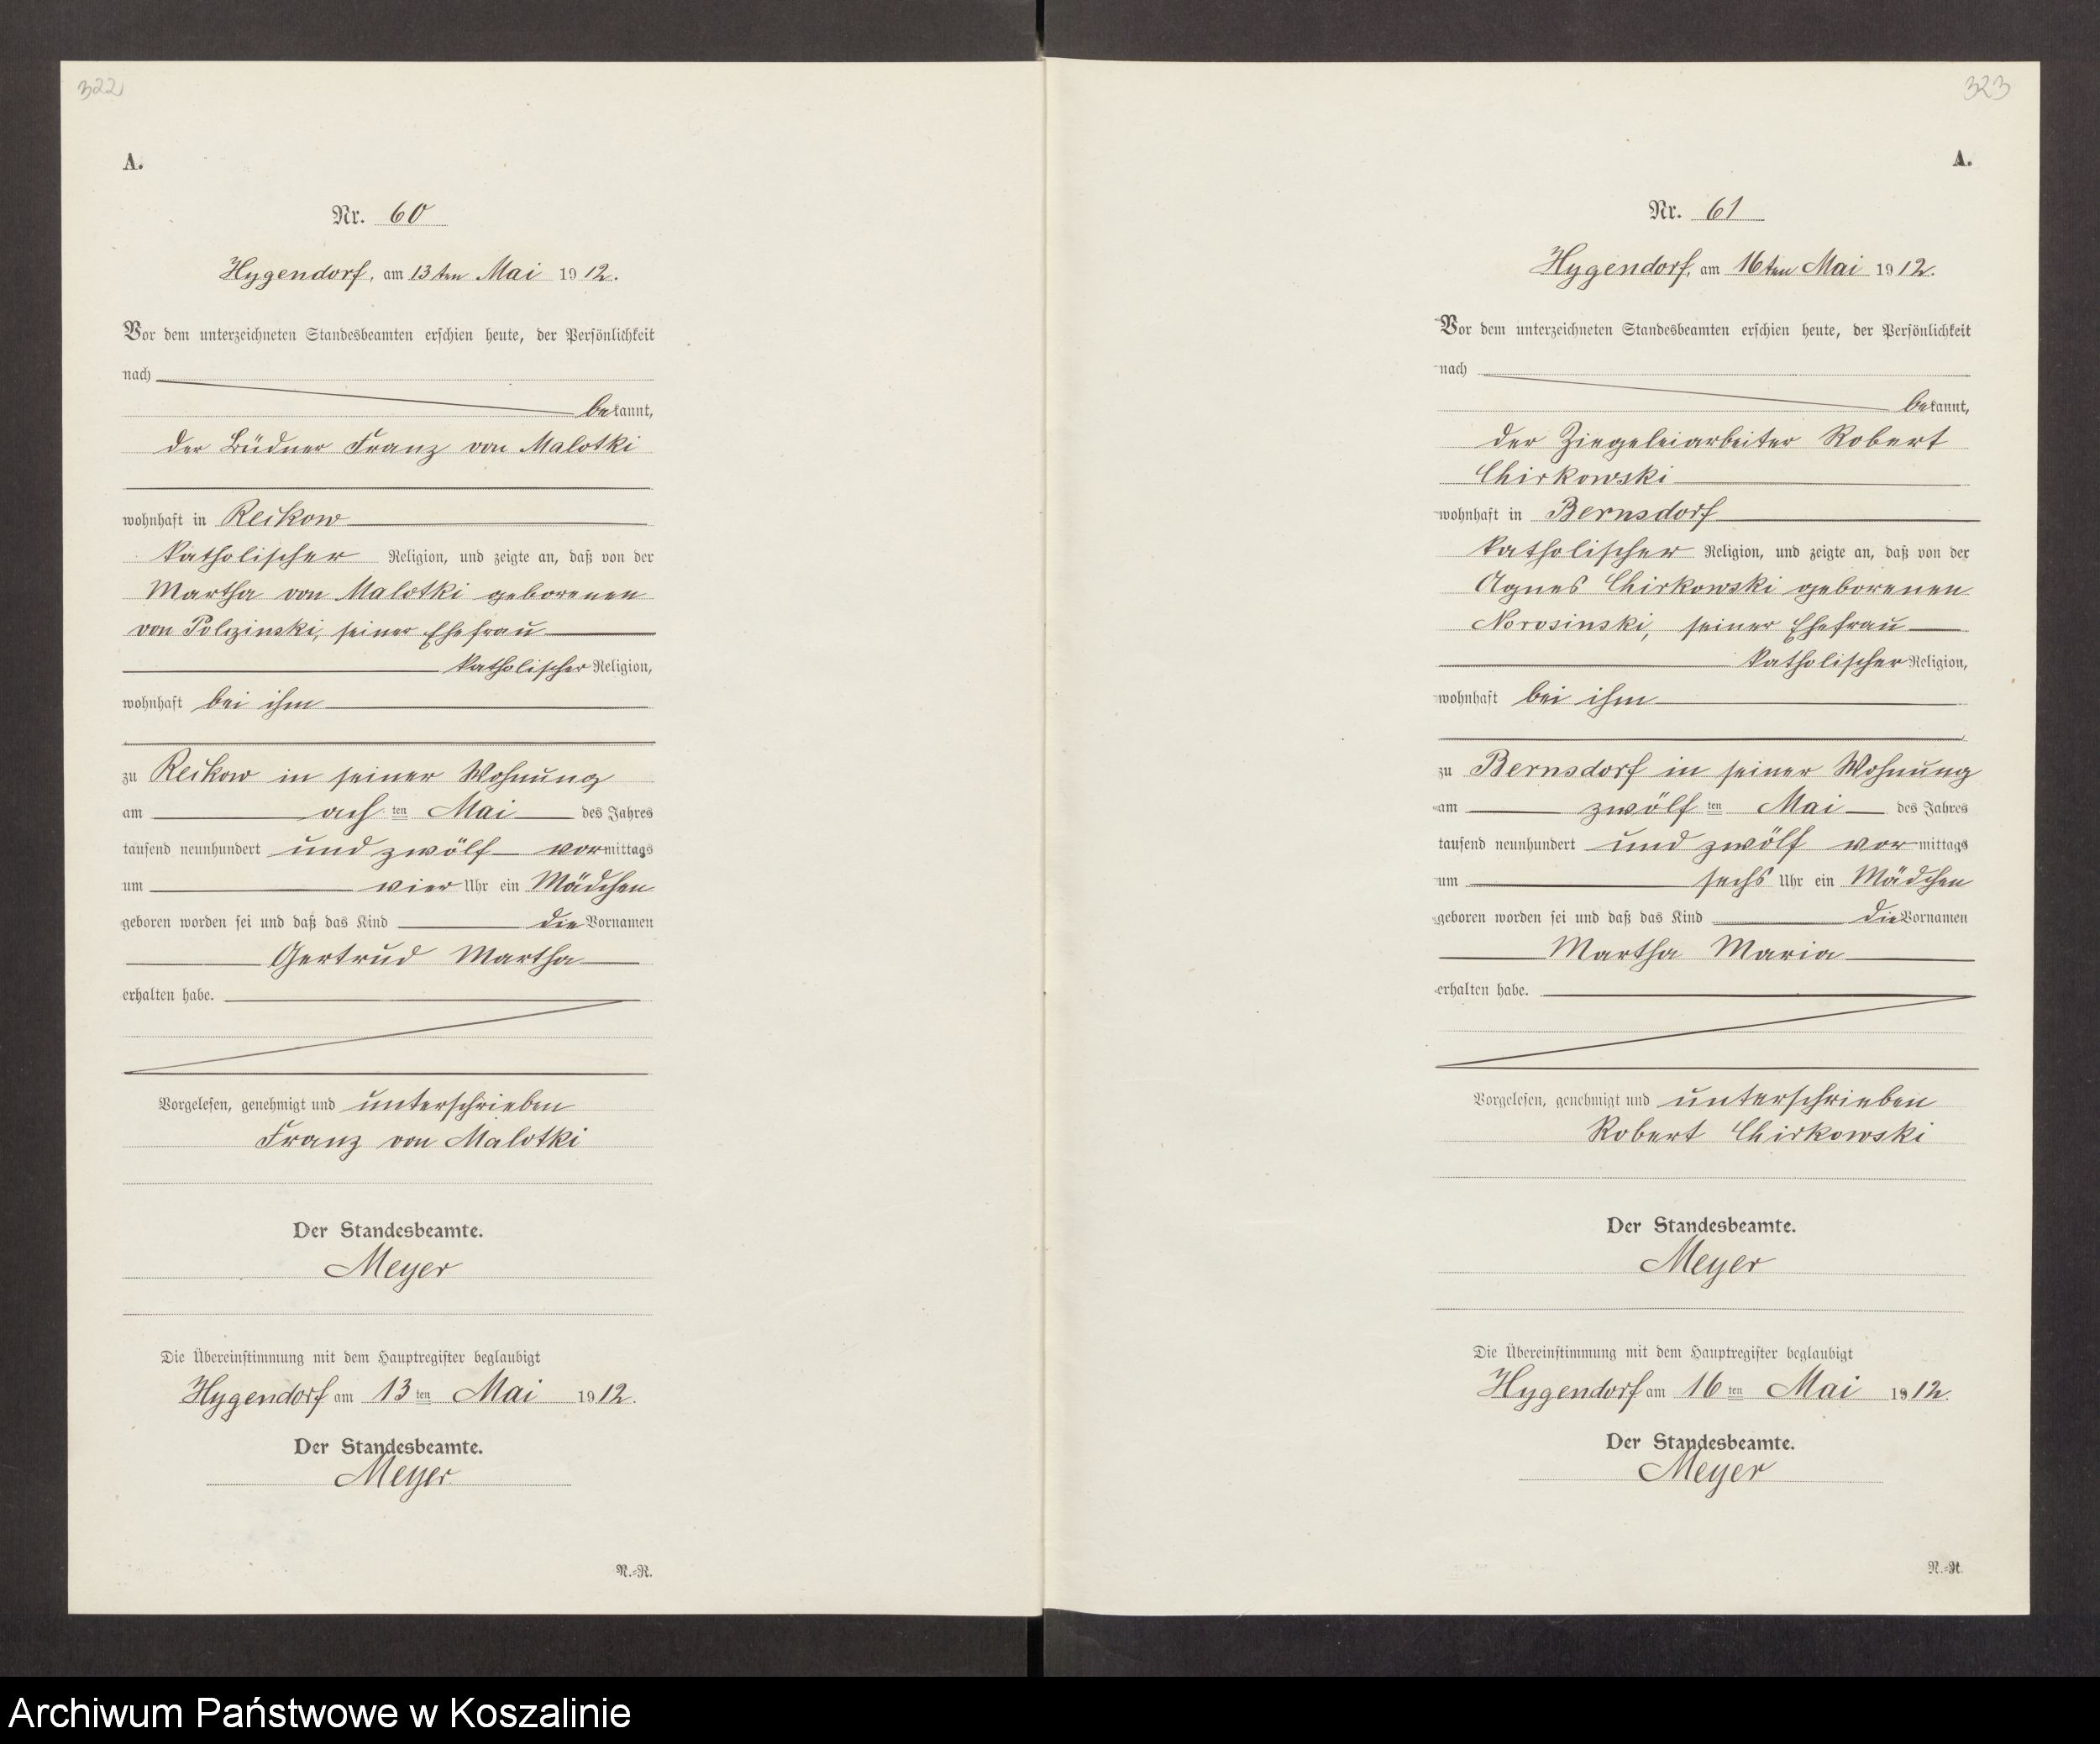 322
A.
Nr. 60
Hygendorf, am 13ten Mai 1912.
Vor dem unterzeichneten Standesbeamten erschien heute, der Persönlichkeit
nach
bekannt,
der Büdner Franz von Malotki
wohnhaft in Reckow
katholischer Religion, und zeigte an, daß von der
Martha von Malotki geborenen
von Polczinski, seiner Ehefrau
katholischer Religion,
wohnhaft bei ihm
zu Reckow in seiner Wohnung
am ach ten Mai des Jahres
tausend neunhundert und zwölf vormittags
um vier Uhr ein Mädchen
geboren worden sei und daß das Kind die Vornamen
Gertrud Martha
erhalten habe.
Vorgelesen, genehmigt und unterschrieben
Franz von Malotki
Der Standesbeamte.
Meyer
Die Übereinstimmung mit dem Hauptregister beglaubigt
Hygendorf am 13 ten Mai 1912.
Der Standesbeamte.
Meyer.
N.=R.
323
A.
Nr. 61
Hygendorf, am 16ten Mai 1912.
Vor dem unterzeichneten Standesbeamten erschien heute, der Persönlichkeit
nach
bekannt,
der Ziegeleiarbeiter Robert
Chirkowski
wohnhaft in Bernsdorf
katholischer Religion, und zeigte an, daß von der
Agnes Chirkowski geborenen
Norosinski, seiner Ehefrau
katholischer Religion,
wohnhaft bei ihm
zu Bernsdorf in seiner Wohnung
am zwölf ten Mai des Jahres
tausend neunhundert und zwölf vormittags
um sechs Uhr ein Mädchen
geboren worden sei und daß das Kind die Vornamen
Martha Maria
erhalten habe.
Vorgelesen, genehmigt und unterschrieben
Robert Chirkowski
Der Standesbeamte.
Meyer
Die Übereinstimmung mit dem Hauptregister beglaubigt
Hygendorf am 16 ten Mai 1912.
Der Standesbeamte.
Meyer
N.=R.
Archiwum Państwowe w Koszalinie